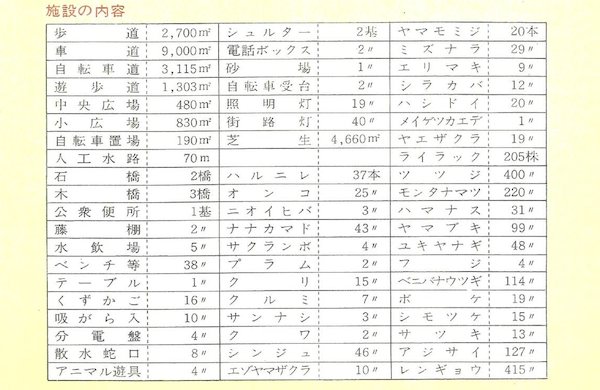 施設の内容
歩道 2,700㎡ シェルター 2基 ヤマモミジ 20本
車道 9,000㎡ 電話ボックス 2〃 ミズナラ 29〃
自転車道 3,115㎡ 砂場 1〃 エリマキ 9〃
遊歩道 1,303㎡ 自転車受台 2〃 シラカバ 12〃
中央広場 480㎡ 照明灯 19〃 ハシドイ 20〃
小広場 830㎡ 街路灯 40〃 メイゲツカエデ 1〃
自転車置場 190㎡ 芝生 4,660㎡ ヤエザクラ 19〃
人工水路 70m ライラック 205株
石橋 2橋 ハルニレ 37本 ツツジ 400〃
木橋 3橋 オンコ 25〃 モンタナマツ 220〃
公衆便所 1基 ニオイヒバ 3〃 ハマナス 31〃
藤棚 2〃 ナナカマド 43〃 ヤマブキ 99〃
水飲場 5〃 サクランボ 4〃 ユキヤナギ 48〃
ベンチ等 38〃 プラム 2〃 フジ 4〃
テーブル 1〃 クリ 15〃 ベニバナウツギ 114〃
くずかご 16〃 クルミ 7〃 ボケ 19〃
吸がら入 10〃 サンナシ 3〃 シモツケ 15〃
分電盤 4〃 クワ 2〃 サツキ 13〃
散水蛇口 8〃 シンジュ 46〃 アジサイ 127〃
アニマル遊具 4〃 エゾヤマザクラ 10〃 レンギョウ 415〃